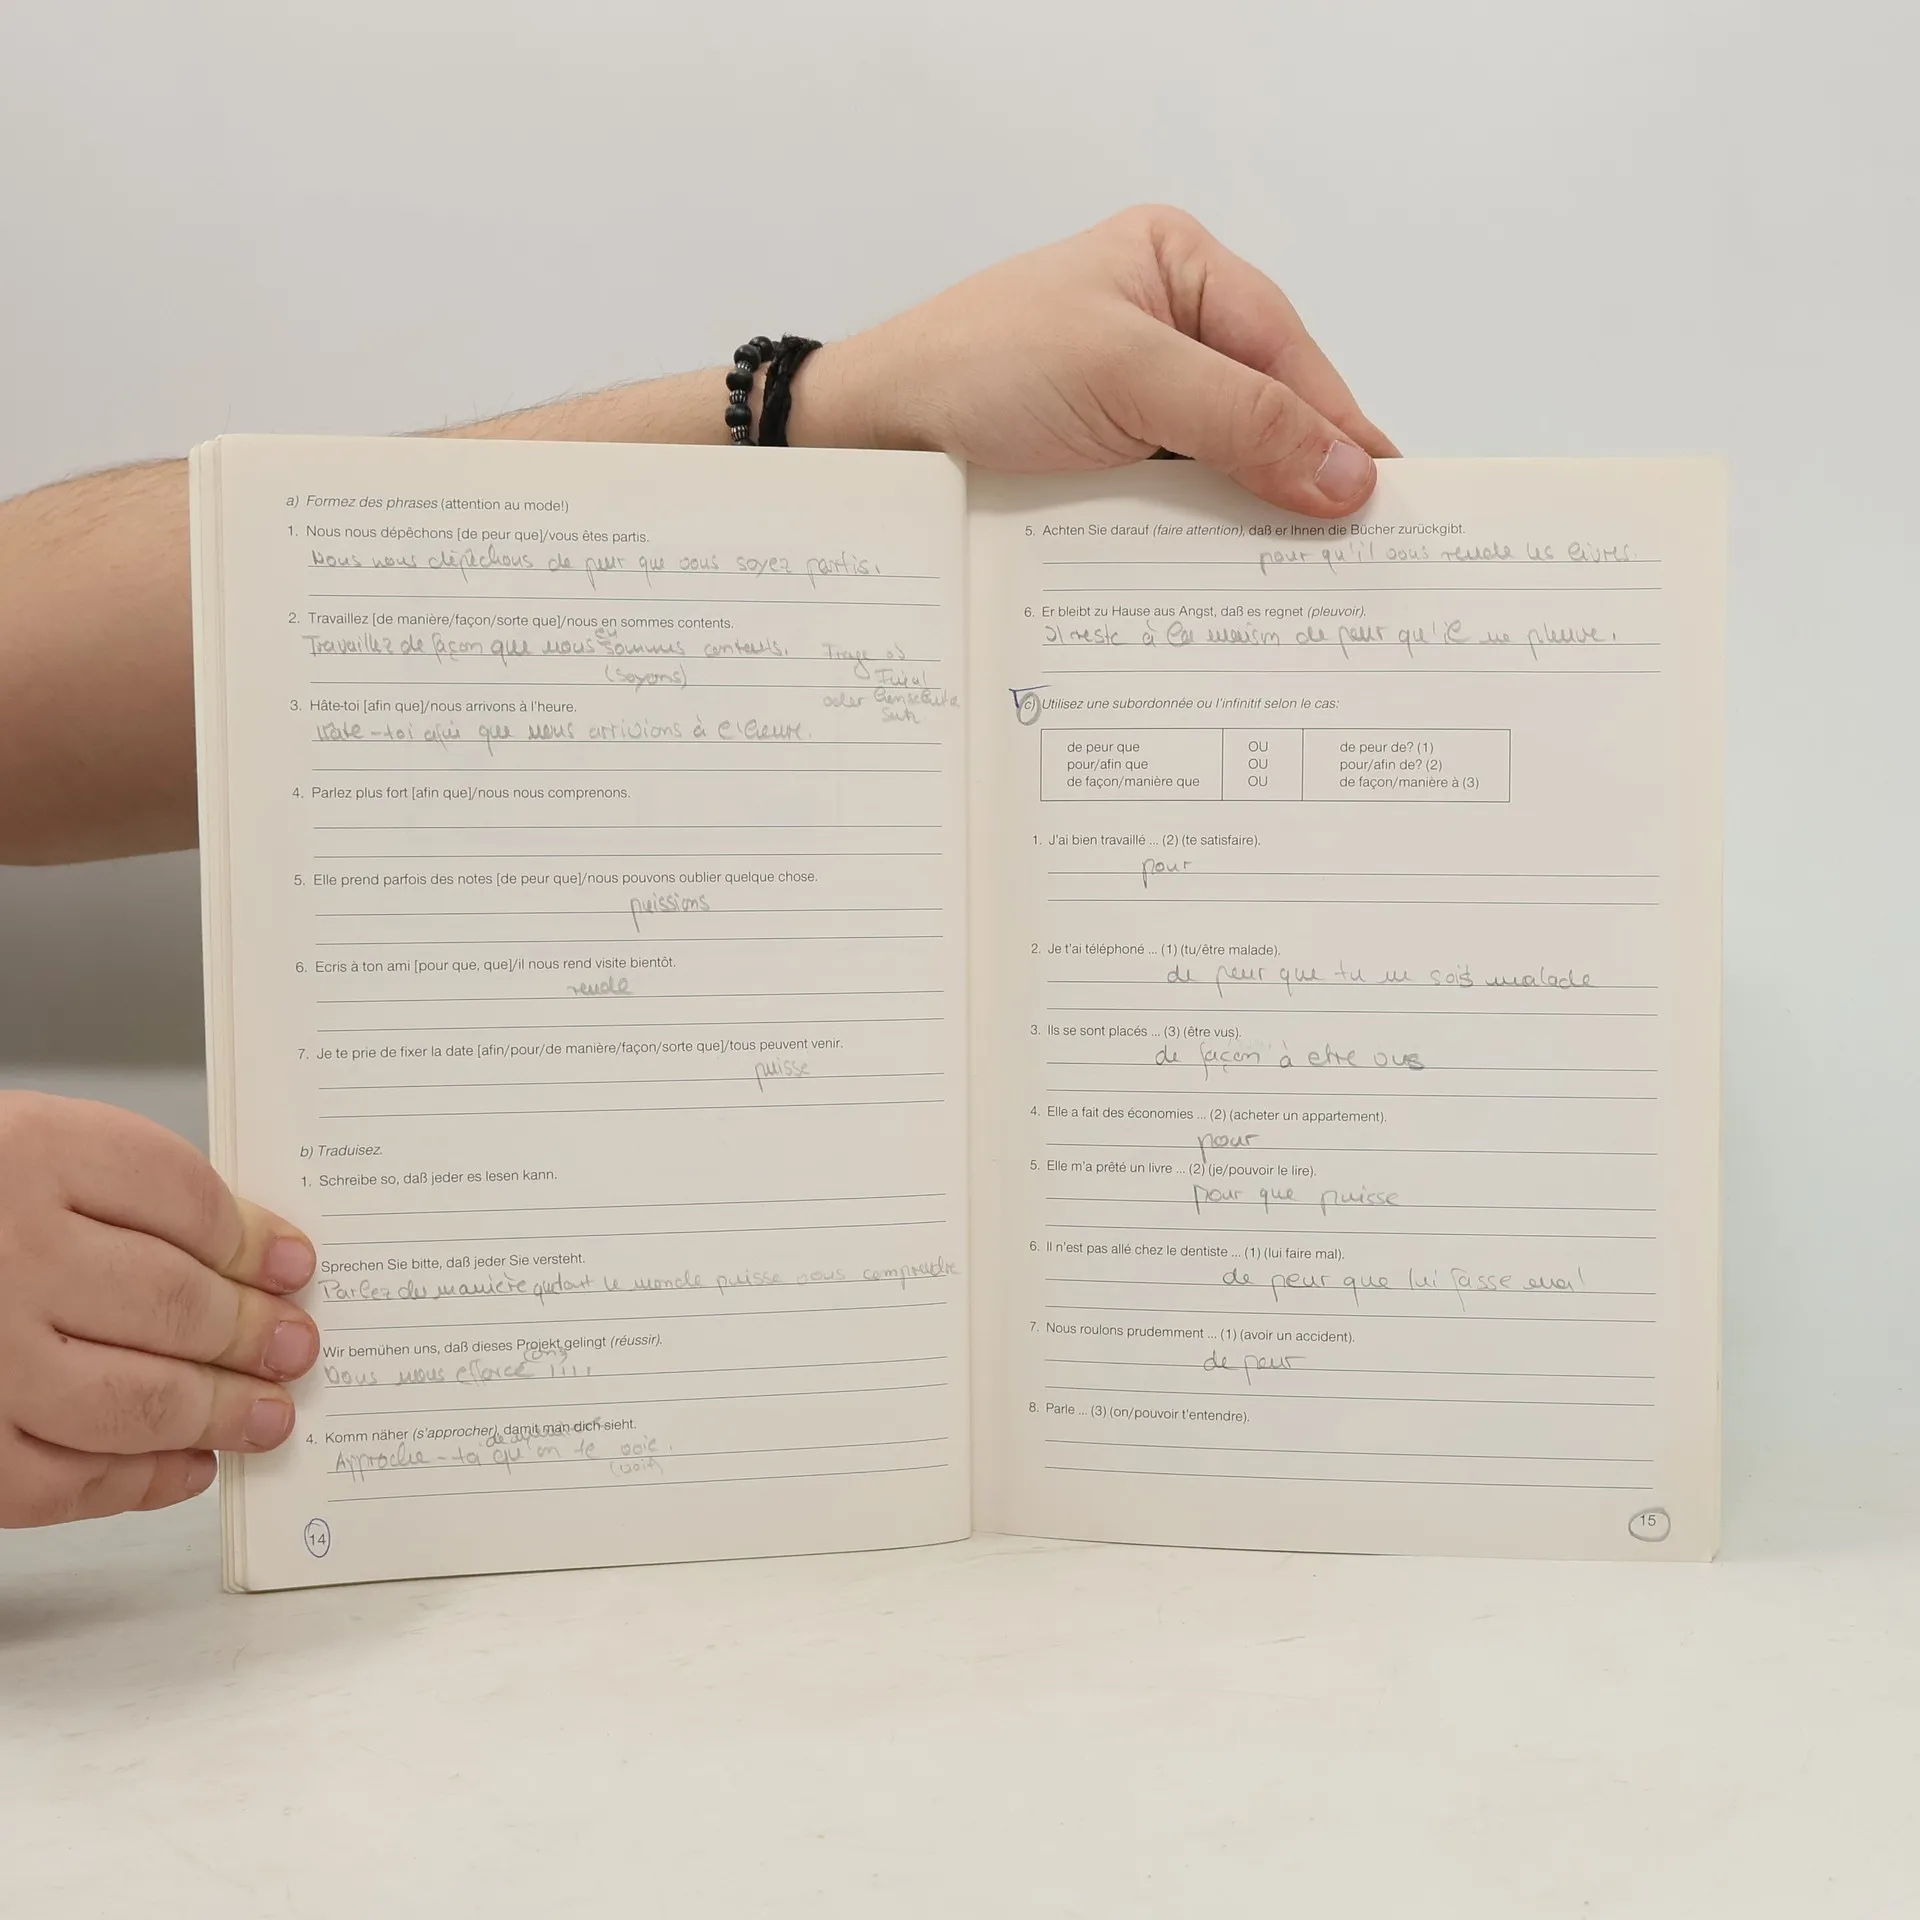 a) Formez des phrases (attention au mode!)
1. Nous nous dépêchons [de peur que]/vous êtes partis.
Nous nous dépêchons de peur que vous soyez partis.
2. Travaillez [de manière/façon/sorte que]/nous en sommes contents.
en
Travaillez de façon que nous sommes contents.
(soyons)
Final
oder
Satz
3. Hâte-toi [afin que]/nous arrivons à l'heure.
Hâte-toi afin que nous arrivions à l'heure.
4. Parlez plus fort [afin que]/nous nous comprenons.
5. Elle prend parfois des notes [de peur que]/nous pouvons oublier quelque chose.
puissions
6. Ecris à ton ami [pour que, que]/il nous rend visite bientôt.
rende
7. Je te prie de fixer la date [afin/pour/de manière/façon/sorte que]/tous peuvent venir.
puisse
b) Traduisez.
1. Schreibe so, daß jeder es lesen kann.
Sprechen Sie bitte, daß jeder Sie versteht.
Parlez de manière que tout le monde puisse vous comprendre
Wir bemühen uns, daß dieses Projekt gelingt (réussir).
ons
Nous nous efforce !!!!
4. Komm näher (s'approcher), damit man dich sieht.
Approche-toi qu'on te voie.
(voit)
14
5. Achten Sie darauf (faire attention), daß er Ihnen die Bücher zurückgibt.
pour qu'il vous rende les livres.
6. Er bleibt zu Hause aus Angst, daß es regnet (pleuvoir).
Il reste à la maison de peur qu'il ne pleuve.
c) Utilisez une subordonnée ou l'infinitif selon le cas:
de peur que OU de peur de? (1)
pour/afin que OU pour/afin de? (2)
de façon/manière que OU de façon/manière à (3)
1. J'ai bien travaillé ... (2) (te satisfaire).
pour
2. Je t'ai téléphoné ... (1) (tu/être malade).
de peur que tu ne sois malade
3. Ils se sont placés ... (3) (être vus).
de façon à etre vus
4. Elle a fait des économies ... (2) (acheter un appartement).
pour
5. Elle m'a prêté un livre ... (2) (je/pouvoir le lire).
pour que puisse
6. Il n'est pas allé chez le dentiste ... (1) (lui faire mal).
de peur que lui fasse mal
7. Nous roulons prudemment ... (1) (avoir un accident).
de peur
8. Parle ... (3) (on/pouvoir t'entendre).
15